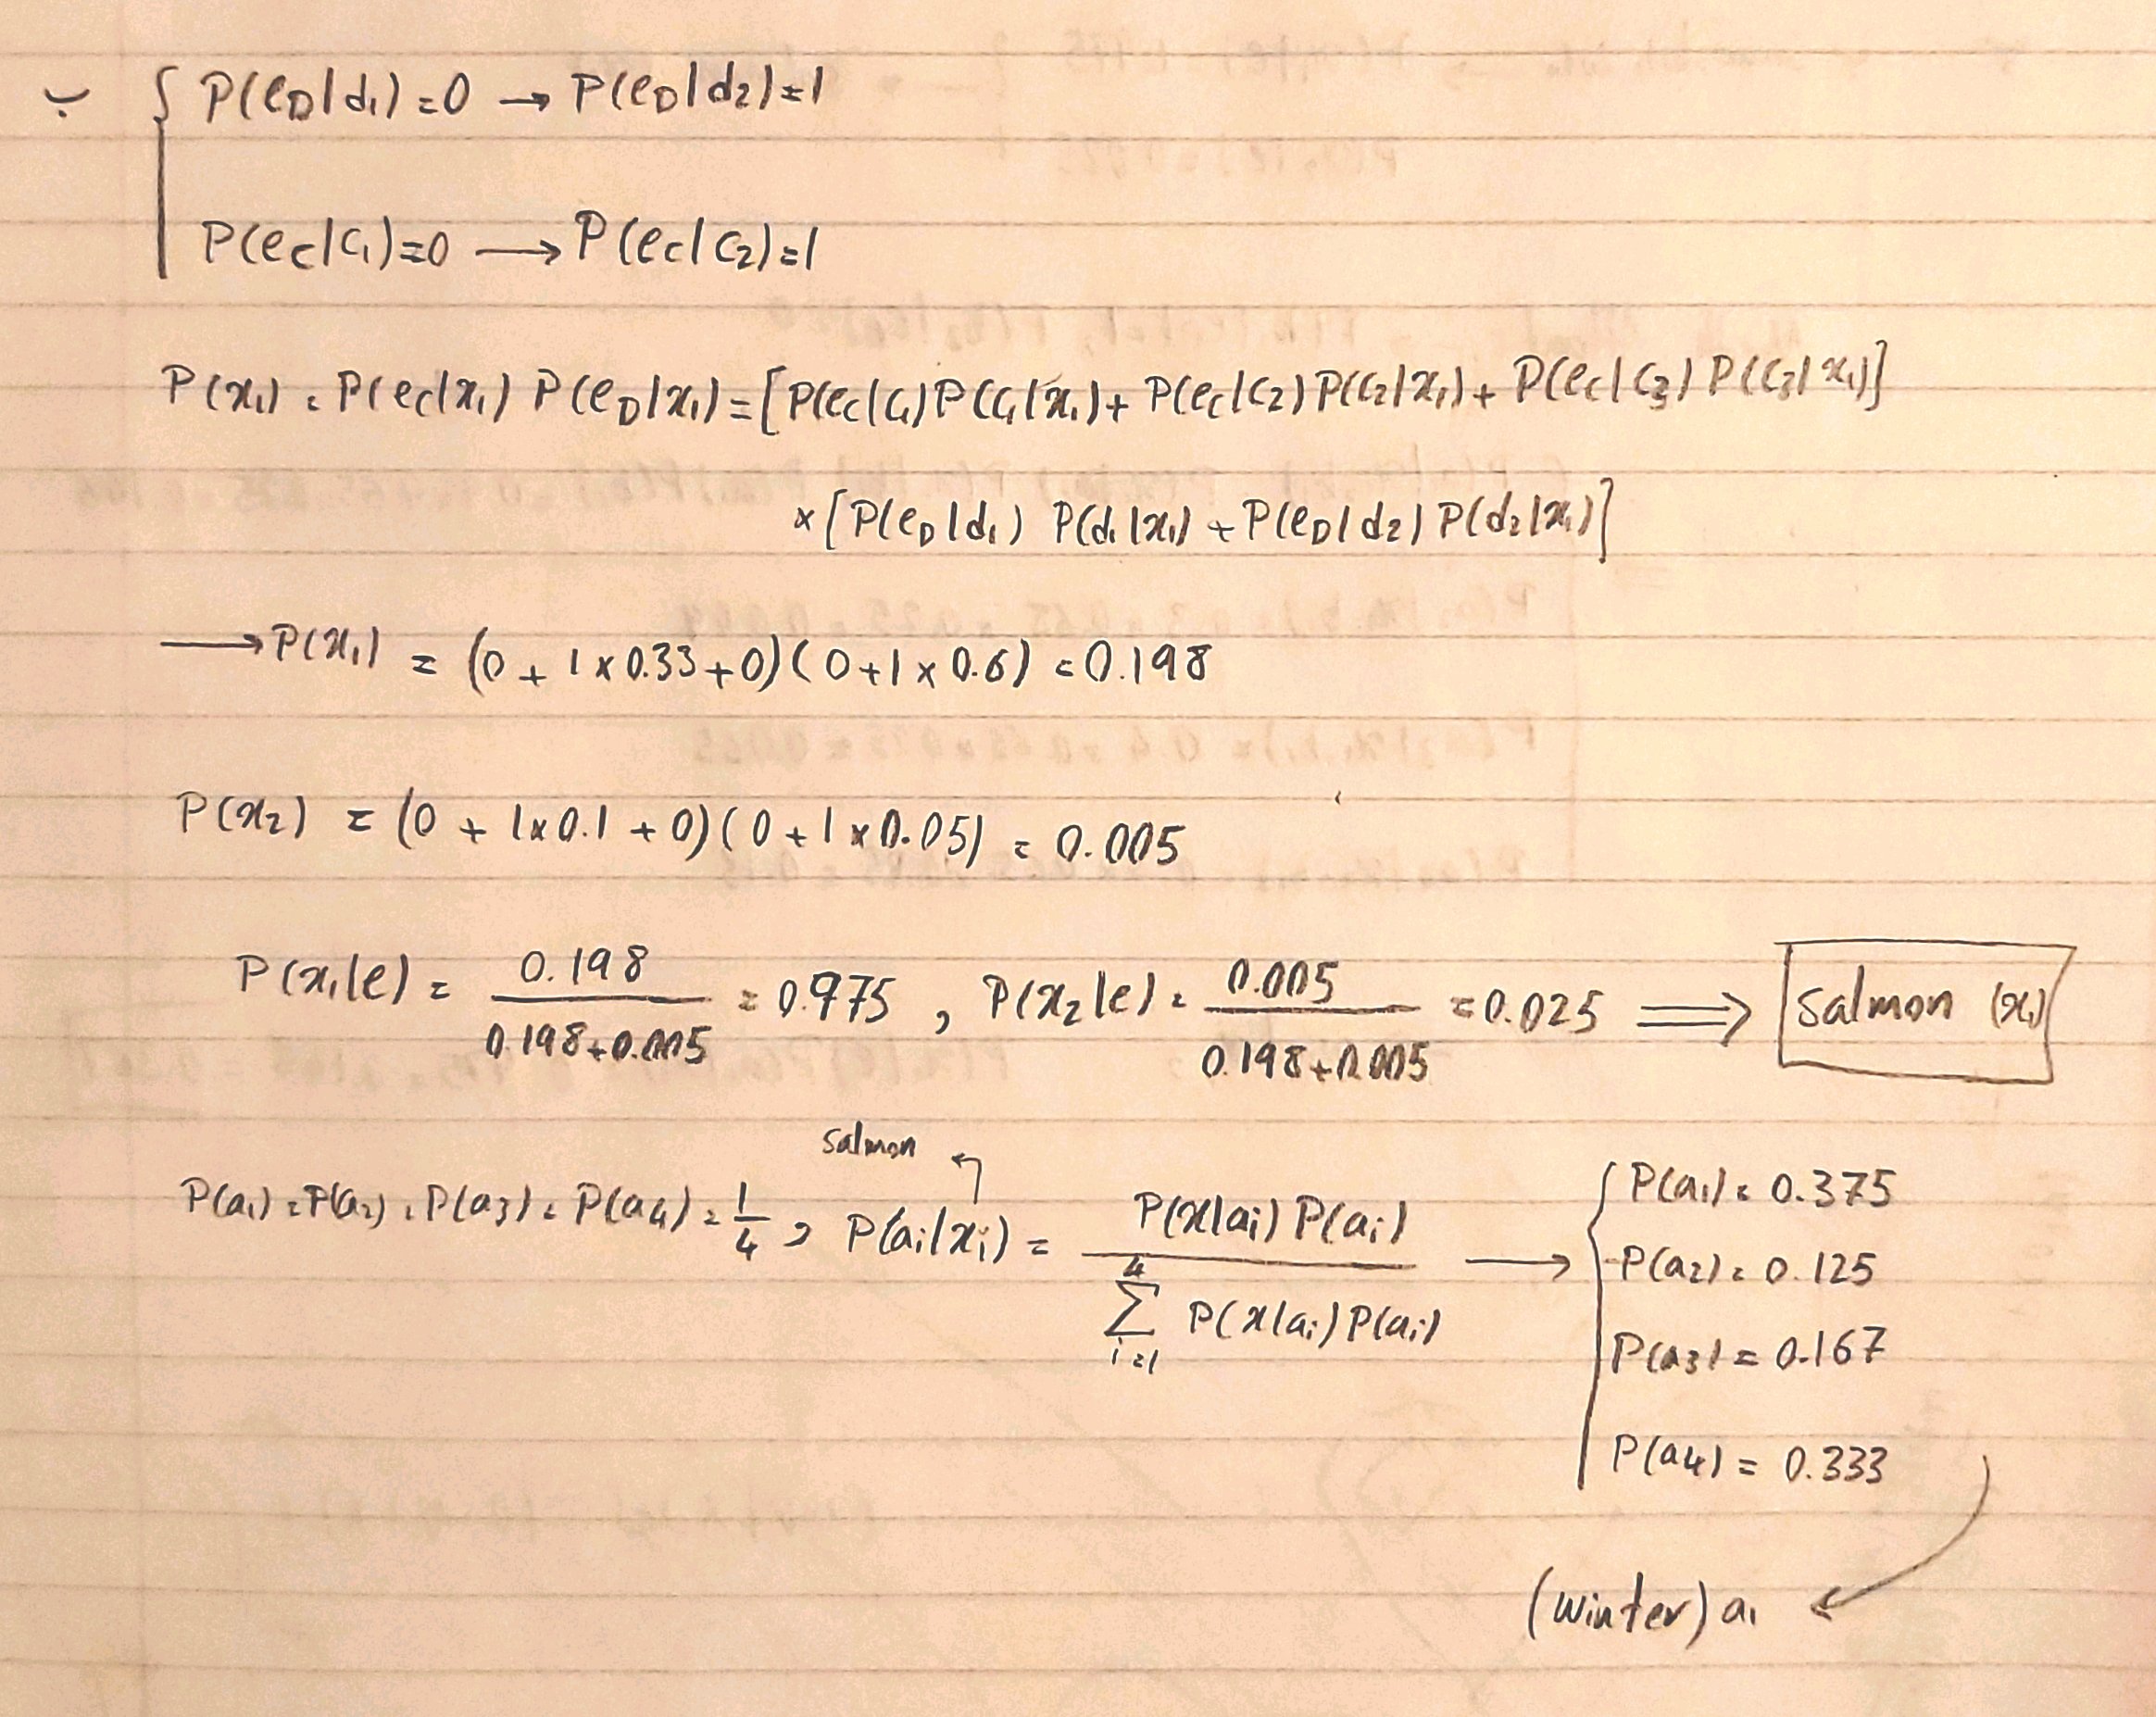 ب { P(e_D|d₁)=0 → P(e_D|d₂)=1
P(e_C|c₁)=0 → P(e_C|c₂)=1
P(x₁) = P(e_C|x₁) P(e_D|x₁) = [P(e_C|c₁)P(c₁|x₁) + P(e_C|c₂)P(c₂|x₁) + P(e_C|c₃)P(c₃|x₁)]
× [P(e_D|d₁) P(d₁|x₁) + P(e_D|d₂) P(d₂|x₁)]
→ P(x₁) = (0 + 1×0.33 + 0)(0 + 1×0.6) = 0.198
P(x₂) = (0 + 1×0.1 + 0)(0 + 1×0.05) = 0.005
P(x₁|e) = 0.198 / 0.198+0.005 = 0.975 , P(x₂|e) = 0.005 / 0.198+0.005 = 0.025 ⟹ Salmon (x₁)
salmon
P(a₁) = P(a₂) = P(a₃) = P(a₄) = 1/4 , P(aᵢ|xᵢ) = P(x|aᵢ) P(aᵢ) / ∑ᵢ₌₁⁴ P(x|aᵢ) P(aᵢ) → { P(a₁) = 0.375
P(a₂) = 0.125
P(a₃) = 0.167
P(a₄) = 0.333
(winter) a₁